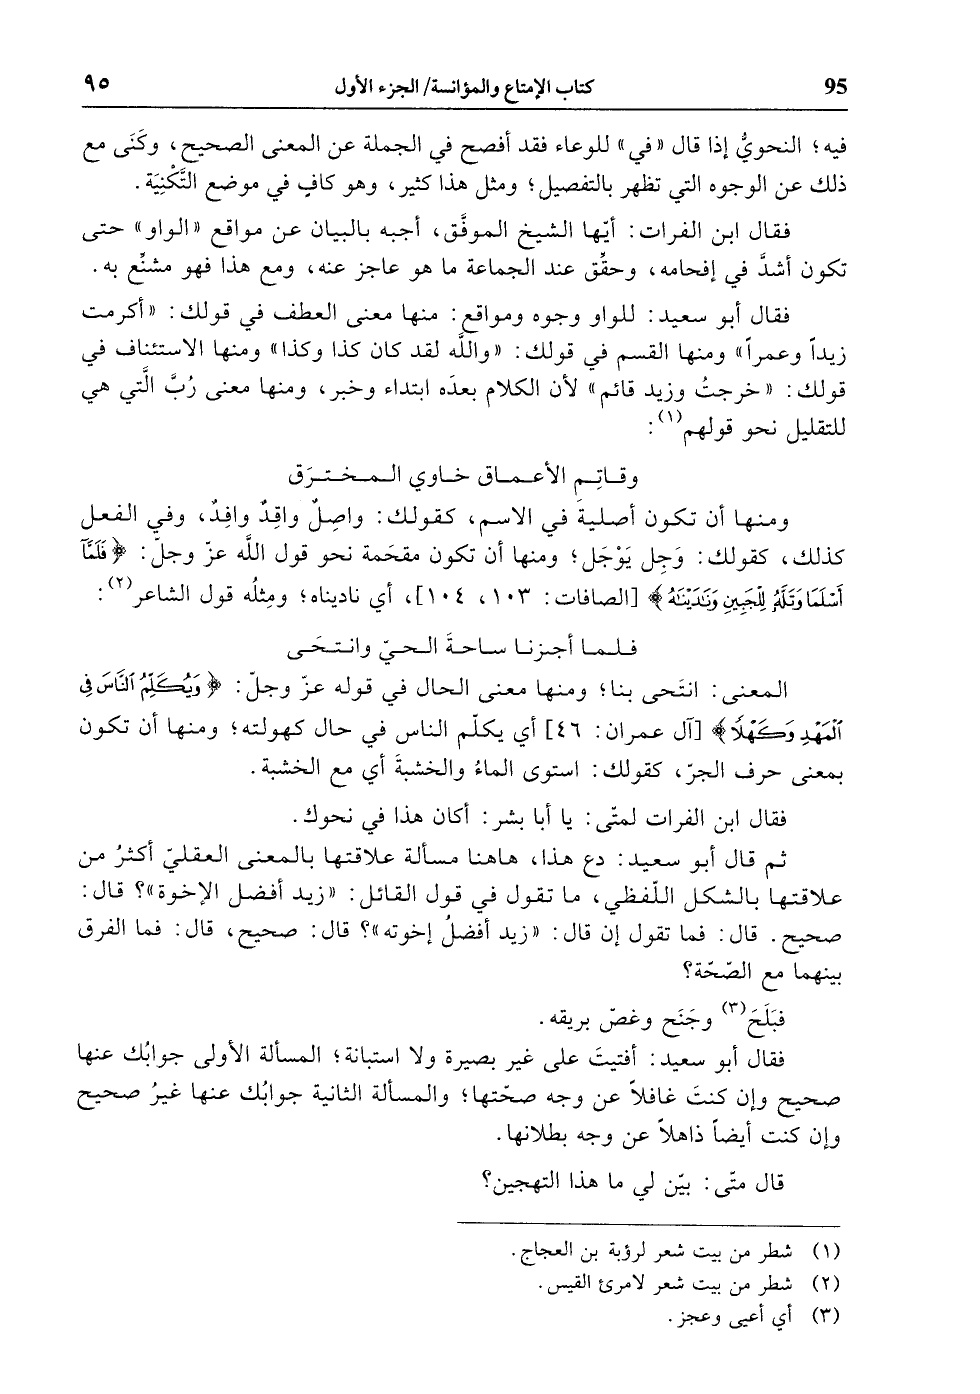 95 كتاب الإمتاع والمؤانسة/ الجزء الأول ٩٥
فيه؛ النحويُّ إذا قال «في» للوعاء فقد أفصح في الجملة عن المعنى الصحيح، وكَنَى مع
ذلك عن الوجوه التي تظهر بالتفصيل؛ ومثل هذا كثير، وهو كافٍ في موضع التَّكْنِيَة.
فقال ابن الفرات: أيّها الشيخ الموفَّق، أجبه بالبيان عن مواقع «الواو» حتى
تكون أشدَّ في إفحامه، وحقِّق عند الجماعة ما هو عاجز عنه، ومع هذا فهو مشنِّع به.
فقال أبو سعيد: للواو وجوه ومواقع: منها معنى العطف في قولك: «أكرمت
زيداً وعمراً» ومنها القسم في قولك: «واللَّه لقد كان كذا وكذا» ومنها الاستئناف في
قولك: «خرجتُ وزيد قائم» لأن الكلام بعدَه ابتداء وخبر، ومنها معنى رُبَّ الَّتي هي
للتقليل نحو قولهم(١):
وقـاتِـم الأعـمـاق خـاوي الـمـخـتـرَق
ومنها أن تكون أصليةَ في الاسم، كقولك: واصِلٌ واقِدٌ وافِدٌ، وفي الفعل
كذلك، كقولك: وَجِل يَوْجَل؛ ومنها أن تكون مقحَمة نحو قول اللَّه عزّ وجلّ: ﴿فَلَمَّآ
أَسْلَمَا وَتَلَّهُ لِلْجَبِينِ وَنَٰدَيْنَٰهُ﴾ [الصافات: ١٠٣، ١٠٤]، أي ناديناه؛ ومِثلُه قول الشاعر(٢):
فـلـمـا أجـزنـا سـاحـةَ الـحـيّ وانـتـحَـى
المعنى: انتَحى بنا؛ ومنها معنى الحال في قوله عزّ وجلّ: ﴿وَيُكَلِّمُ ٱلنَّاسَ فِي
ٱلْمَهْدِ وَكَهْلًا﴾ [آل عمران: ٤٦] أي يكلّم الناس في حال كهولته؛ ومنها أن تكون
بمعنى حرف الجرّ، كقولك: استوى الماءُ والخشبةَ أي مع الخشبة.
فقال ابن الفرات لمتّى: يا أبا بشر: أكان هذا في نحوك.
ثم قال أبو سعيد: دع هذا، هاهنا مسألة علاقتها بالمعنى العقليّ أكثرُ من
علاقتها بالشكل اللّفظي، ما تقول في قول القائل: «زيد أفضل الإخوة»؟ قال:
صحيح. قال: فما تقول إن قال: «زيد أفضلُ إخوته»؟ قال: صحيح، قال: فما الفرق
بينهما مع الصّحّة؟
فبَلَحَ(٣) وجَنَح وغصّ بريقه.
فقال أبو سعيد: أفتيتَ على غير بصيرة ولا استبانة؛ المسألة الأولى جوابُك عنها
صحيح وإن كنتَ غافلاً عن وجه صحّتها؛ والمسألة الثانية جوابُك عنها غيرُ صحيح
وإن كنت أيضاً ذاهلاً عن وجه بطلانها.
قال متّى: بيّن لي ما هذا التهجين؟
(١) شطر من بيت شعر لرؤبة بن العجاج.
(٢) شطر من بيت شعر لامرئ القيس.
(٣) أي أعيى وعجز.